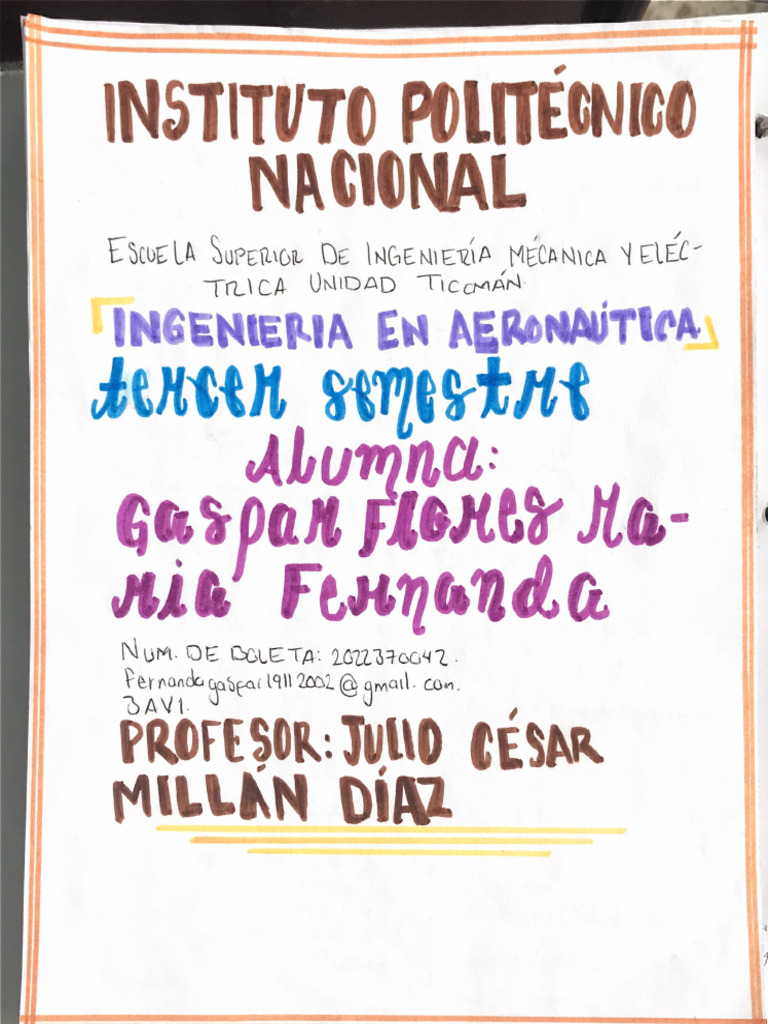 INSTITUTO POLITÉCNICO
NACIONAL
ESCUELA SUPERIOR DE INGENIERÍA MÉCANICA Y ELÉC-
TRICA UNIDAD TICOMÁN.
INGENIERIA EN AERONAÚTICA
tercer semestre
Alumna:
Gaspar Flores Ma-
ria Fernanda
NUM. DE BOLETA: 2022370042.
fernandagaspar19112002@gmail.com.
3AV1.
PROFESOR: JULIO CÉSAR
MILLÁN DÍAZ